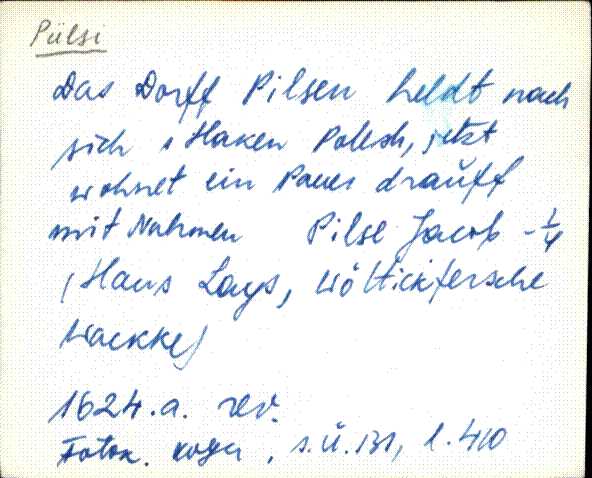 Pülsi
Das Dorff Pilsen heldt nach
sich 1 Haken Polnisch, jetzt
wohnet ein Pauer drauff
mit Nahmen Pilse Jacob - 1/4
(Hans Lays, Wöltickfersche
Wackke)
1624.a. rev.
Fotok. kogu, s.ü.131, l.410